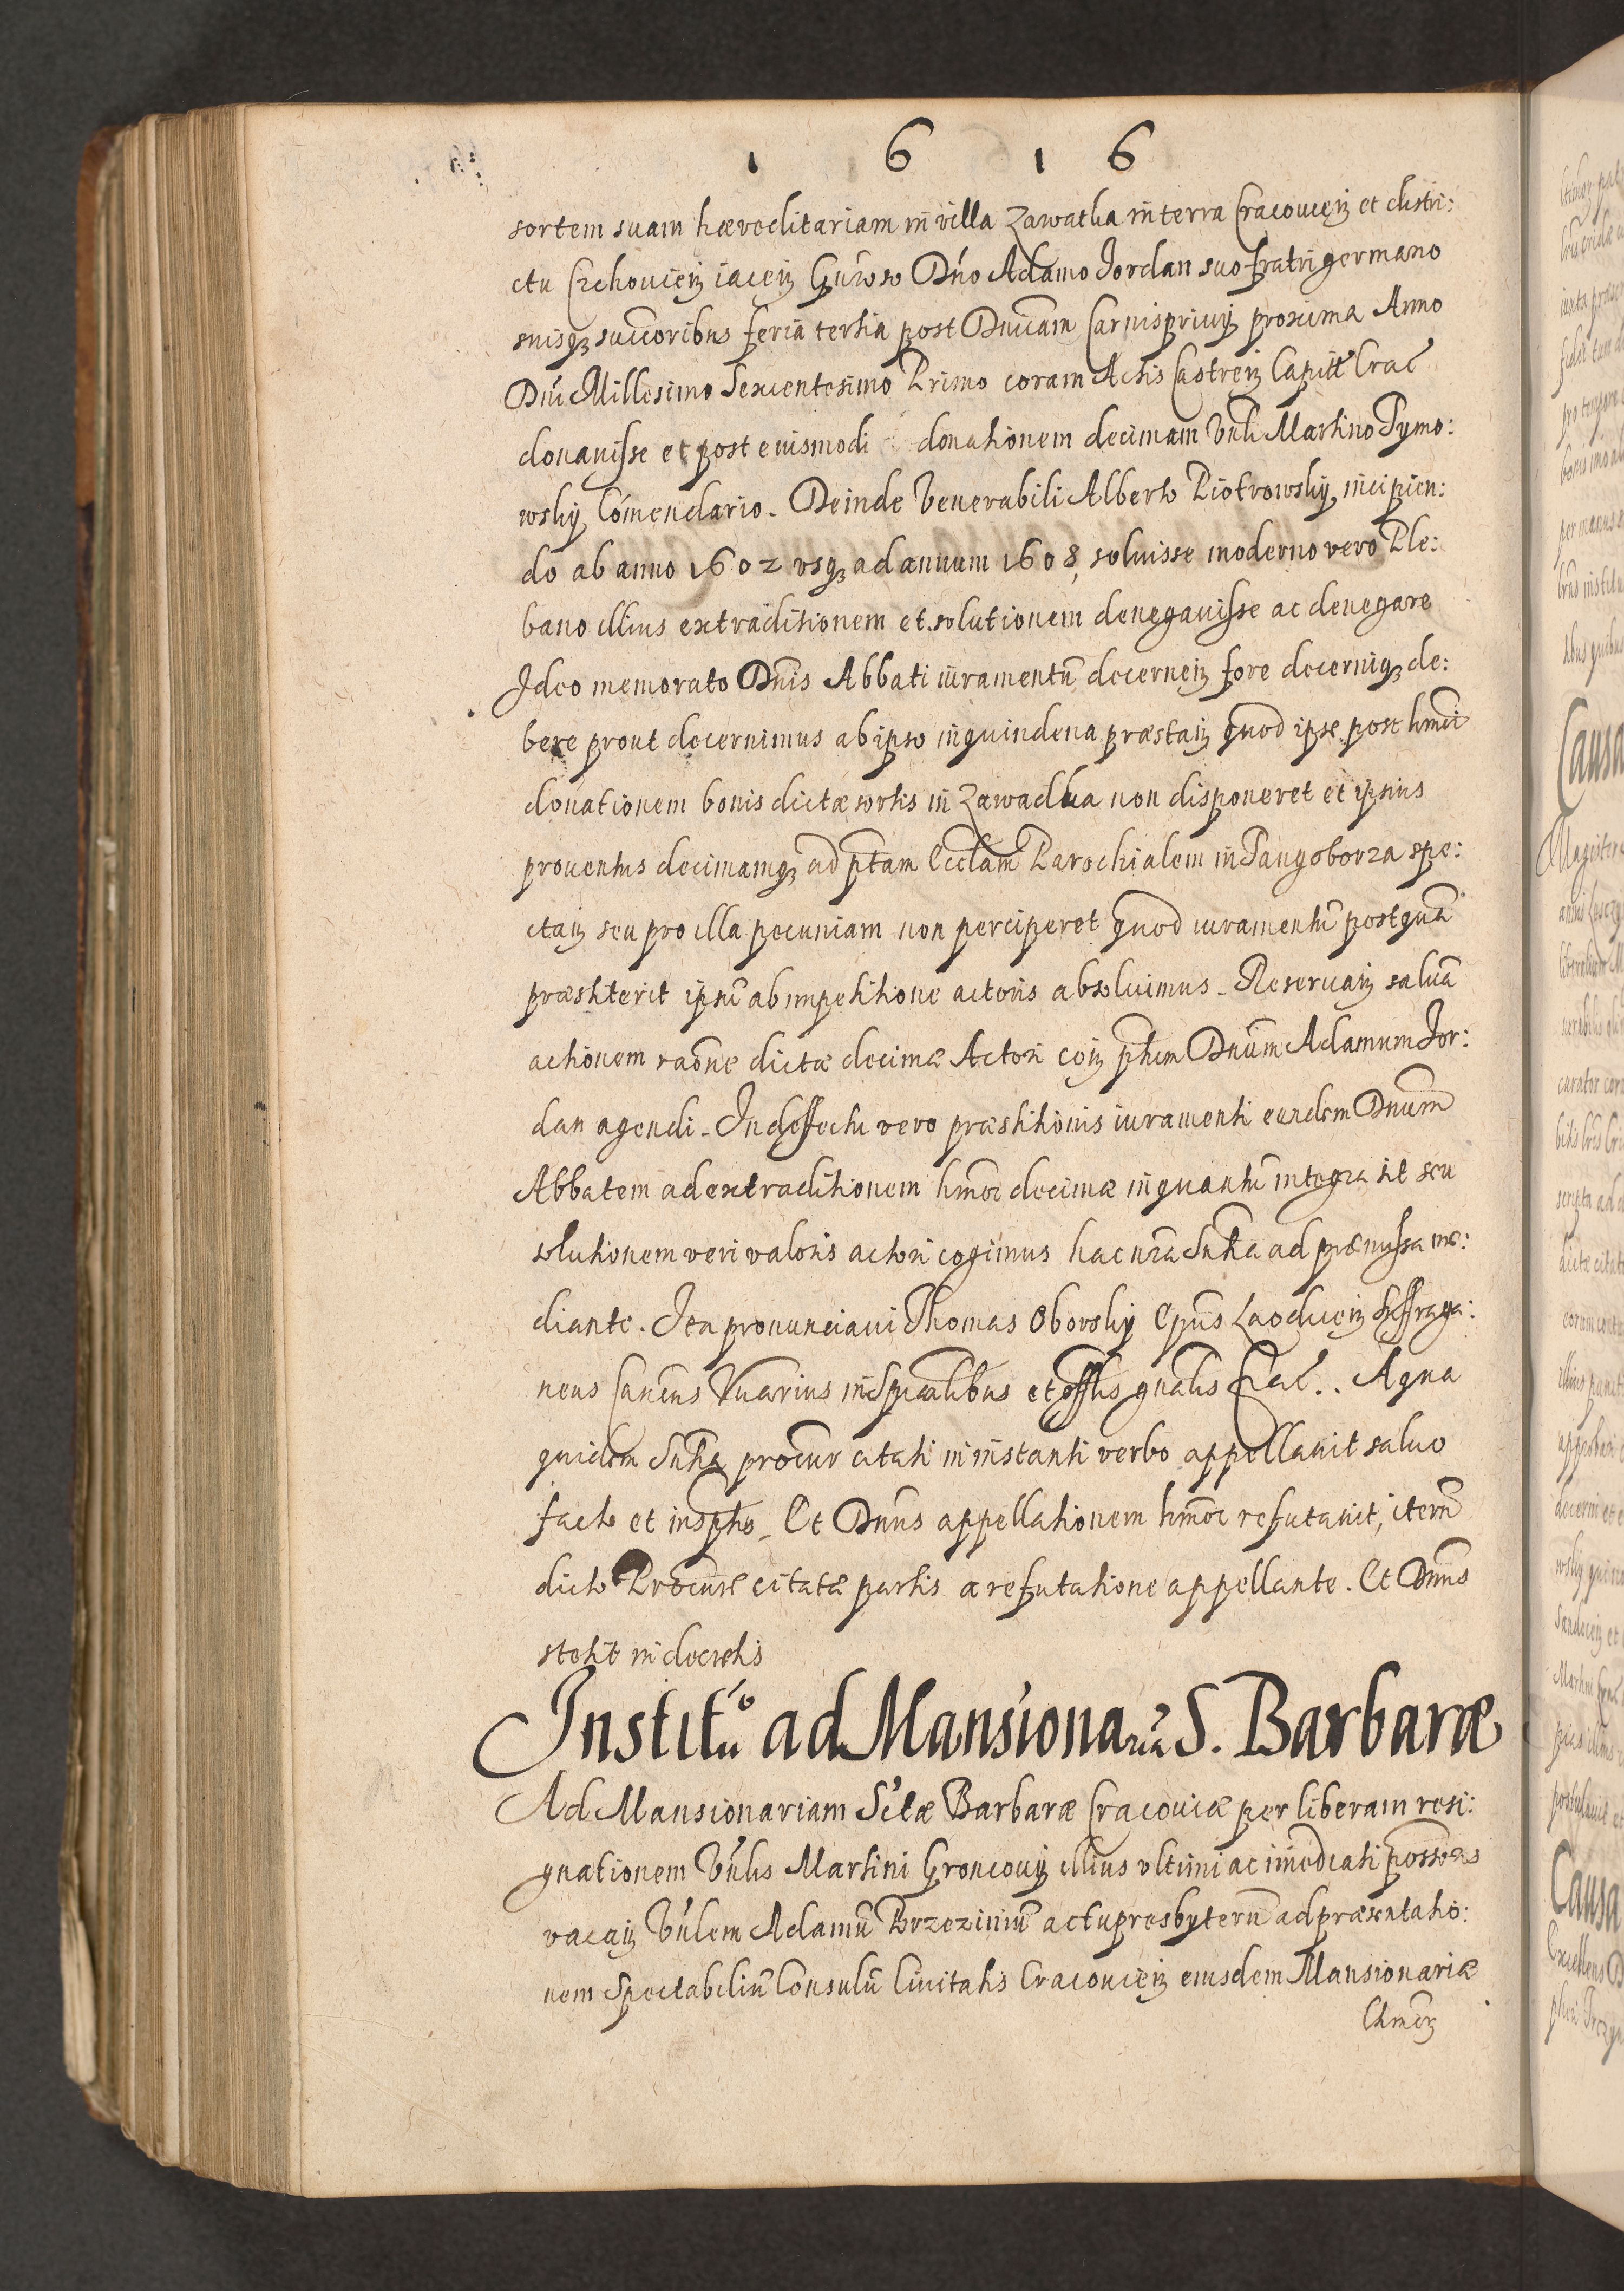 1 6 1 6
sortem suam hæreditariam in villa Zawatha in terra Cracouieñ et distri:
ctu Czchouieñ iaceñ Gñroso Dño Adamo Jordan suo fratri germano
suisq₃ succoribus feria tertia post Dnicam Carnispriuij proxima Anno
Dñi Millesimo Sexcentesimo Primo coram Actis Castreñ Capitł Crac̃
donauisse et post eiusmodi donationem decimam Vnli Martino Pymo:
wskỹ Com̃endario. Deinde Venerabili Alberto Piotrowskỹ, incipien:
do ab anno 1602 vsq₃ ad annum 1608, soluisse moderno vero Ple:
bano illius extraditionem et solutionem denegauisse ac denegare
Ideo memorato Dnis Abbati iuramentũ decerneñ fore decerniq₃ de:
bere prout decernimus ab ipso in quindena præstañ quod ipse post hmõi
donationem bonis dictæ sortis in Zawadka non disponeret et ipsius
prouentus decimamq₃ ad ptam Ecclam Parochialem in Pangoborza spe:
ctañ seu pro illa pecuniam non perciperet quod iuramentũ postquã
præstiterit ipsũ ab impetitione actoris absoluimus. Reseruañ saluã
actionem raõne dictæ decimæ Actori coñ ptum Dnũm Adamum Jor:
dan agendi. In deffectu vero præstitionis iuramenti eundem Dnũm
Abbatem ad extraditionem hmõi decimæ in quantũ integra sit seu
solutionem veri valoris actori cogimus hac nr̃a Sñtia ad præmissa me:
diante. Ita pronunciaui Thomas Oborskỹ Epũs Laodicеñ Suffraga:
neus Canĉus Vicarius in Spũalibus et Offłis gñalis Crac̃.. A qua
quidem Sñtia procur citati in instanti verbo appellauit saluo
facto et in scptis. Et Dnũs appellationem hmõi refutauit, iterũ
dicto Procure citatæ partis a refutatione appellante. Et Dnũs
stetit in decretis
Institũo ad Mansionariã S. Barbaræ
Ad Mansionariam S̃ctæ Barbaræ Cracouiæ per liberam resi:
gnationem Vñlis Martini Groncouij illius vltimi ac im̃ediati possoris
vacañ Vñlem Adamũ Brzezinium actu presbyterũ ad præsentatio:
nem Spectabiliũ Consulũ Ciuitatis Cracouieñ eiusdem Mansionariæ